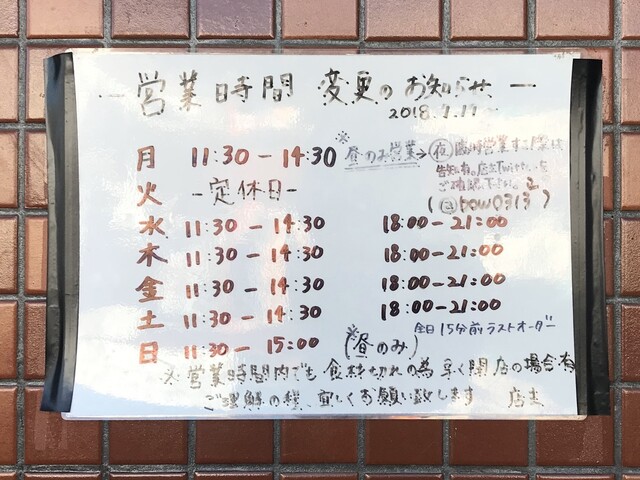 ー営業時間 変更のお知らせー
2018.9.19〜
月 11:30-14:30 ※昼のみ営業→(夜)臨時営業する際は
告知有。店主Twitterを
ご確認、下さい。
火 -定休日-
(@pow0313)
水 11:30-14:30 18:00-21:00
木 11:30-14:30 18:00-21:00
金 11:30-14:30 18:00-21:00
土 11:30-14:30 18:00-21:00
全日15分前ラストオーダー
日 11:30-15:00 ※(昼のみ)
※営業時間内でも食材切れの為早く閉店の場合有
ご理解の程、宜しくお願い致します 店主